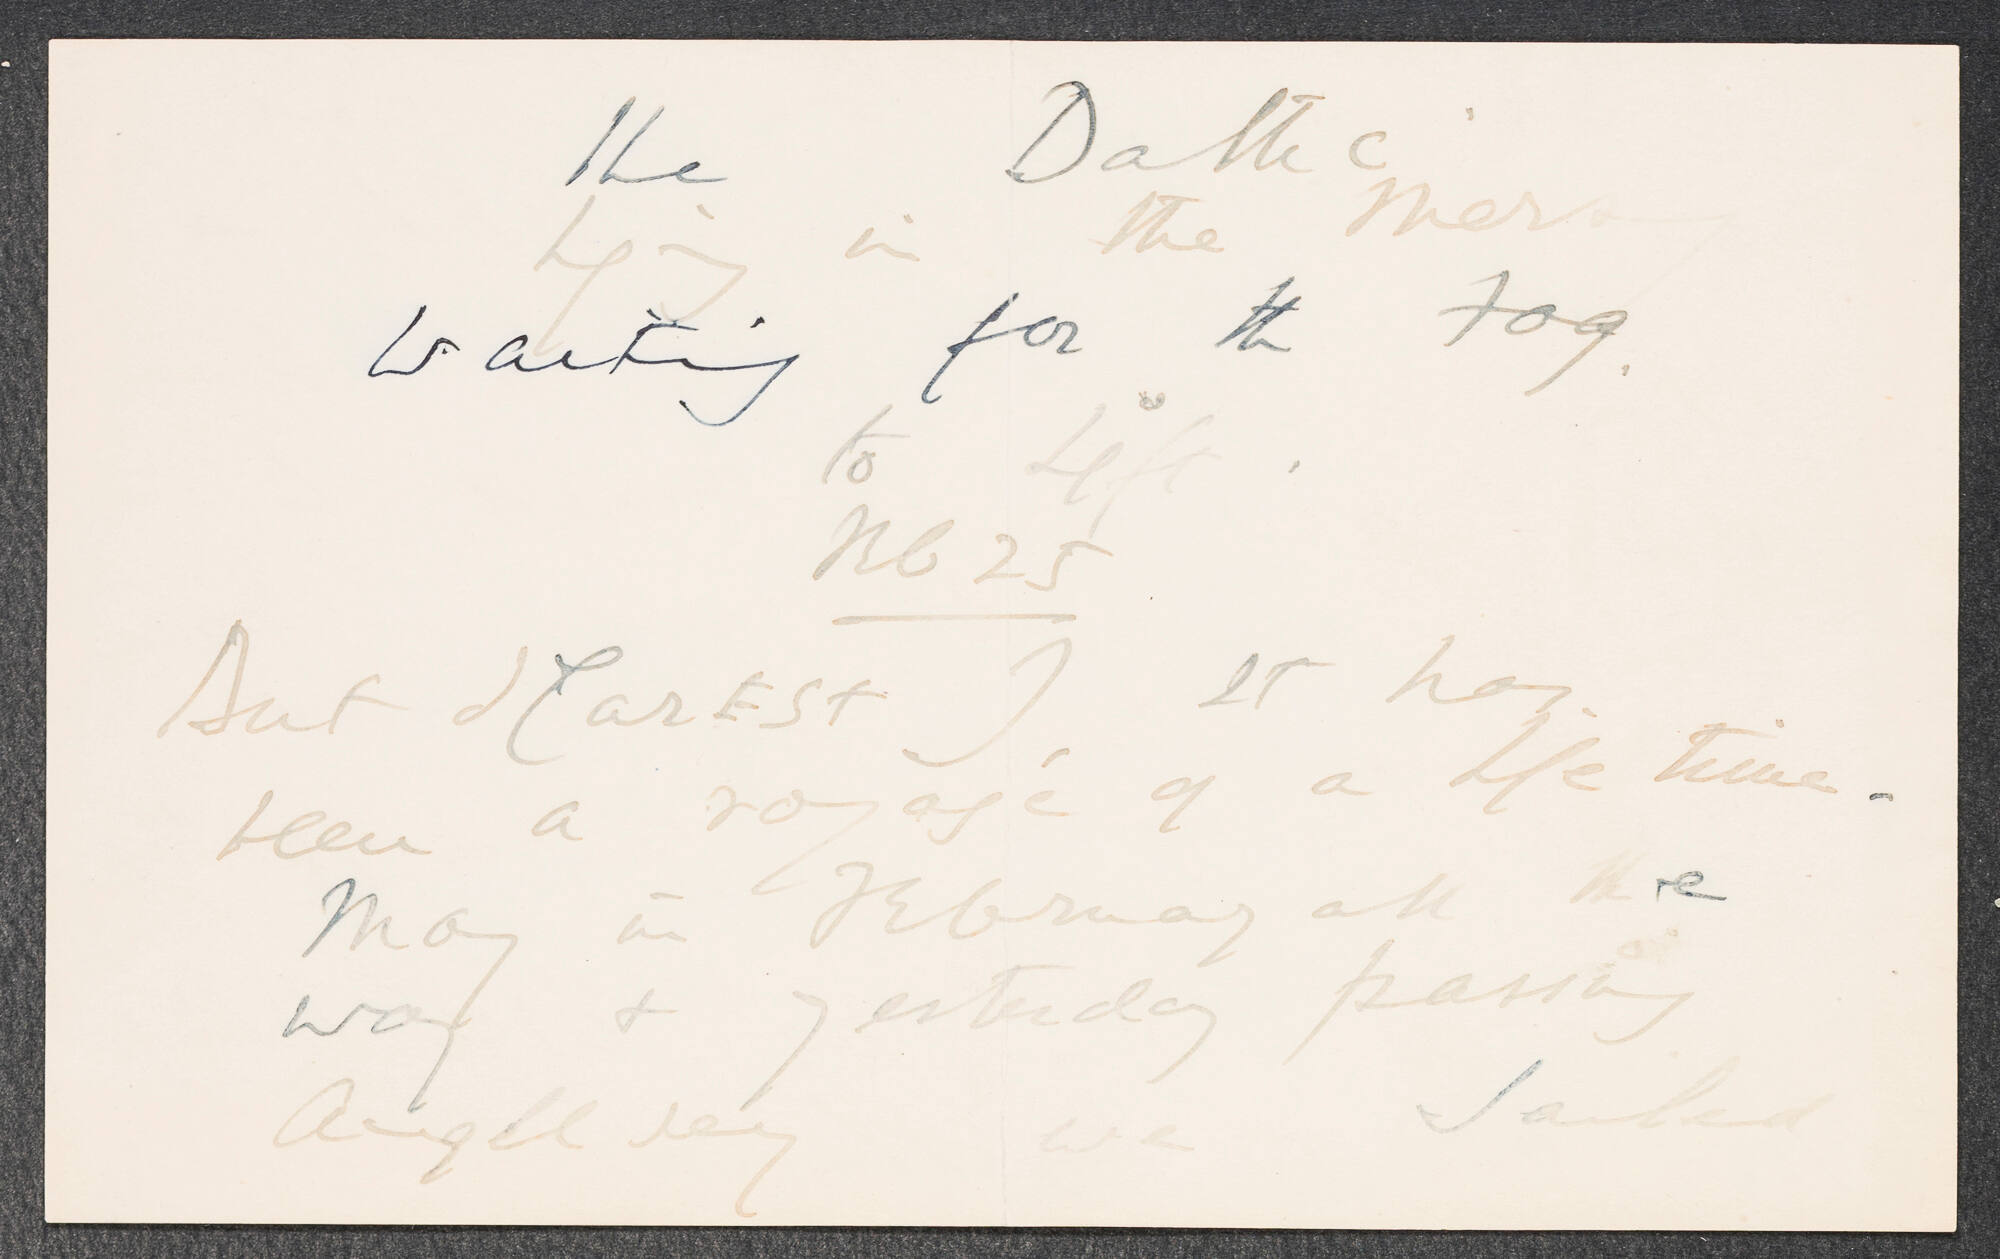 the Baltic
lying in the Mersey
waiting for the fog.
to lift.
Feb 25
But dearest, it has
been a voyage of a life time.
May in February all the
way + yesterday passing
Anglesey we sailed